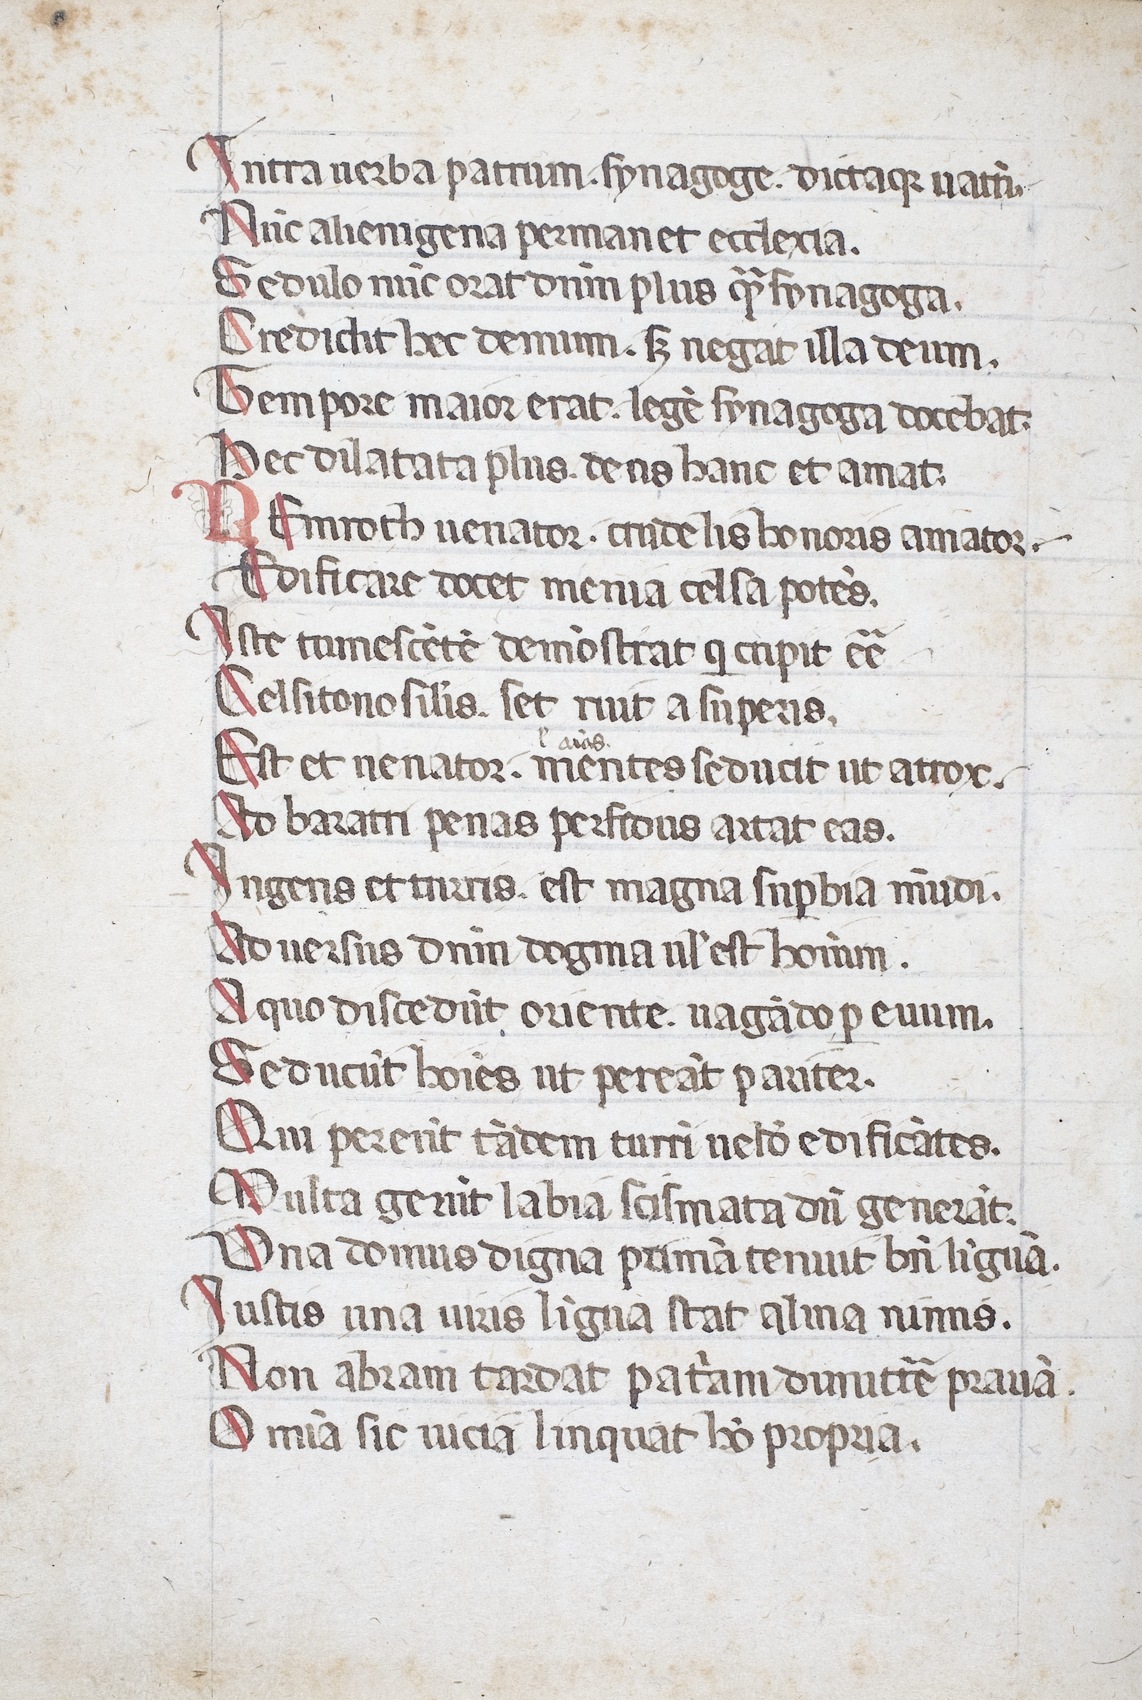 Intra uerba patrum. synagoge. dictaqꝫ uatū.
Nūc alienigena permanet ecclexia.
Sedulo nūc orat dnm̄ plus qꝫ̄ synagoga.
Credidit hec demum. sꝫ negat illa deum.
Tempore maior erat. legē synagoga docebat.
Hec dilatata plus. deus hanc et amat.
NEmroth uenator. crudelis honoris amator.
Edificare docet menia celsa potēs.
Iste tumescētē demōstrat q cupit ēē
Celsitono silis. set ruit a superis.
l' aīas.
Est et uenator. mentes seducit ut atrox.
Ad baratri penas perfidus artat eas.
Ingens et turris. est magna suꝑbia mūdi.
Aduersus dnm̄ dogma ul' est hoīum.
A quo discedūt oriente. uagādo ꝑ euum.
Seducūt hoīes ut pereāt pariter.
Qui pererūt tādem turri uelō edificātes.
Multa gerūt labia scismata dū generāt.
Una domus digna primā tenuit bn̄ līguā.
Iustis una uiris līgua stat alma nimis.
Non abram tardat pat'am dimittē̄ prauā.
Omīa sic iucia linquat hō propria.